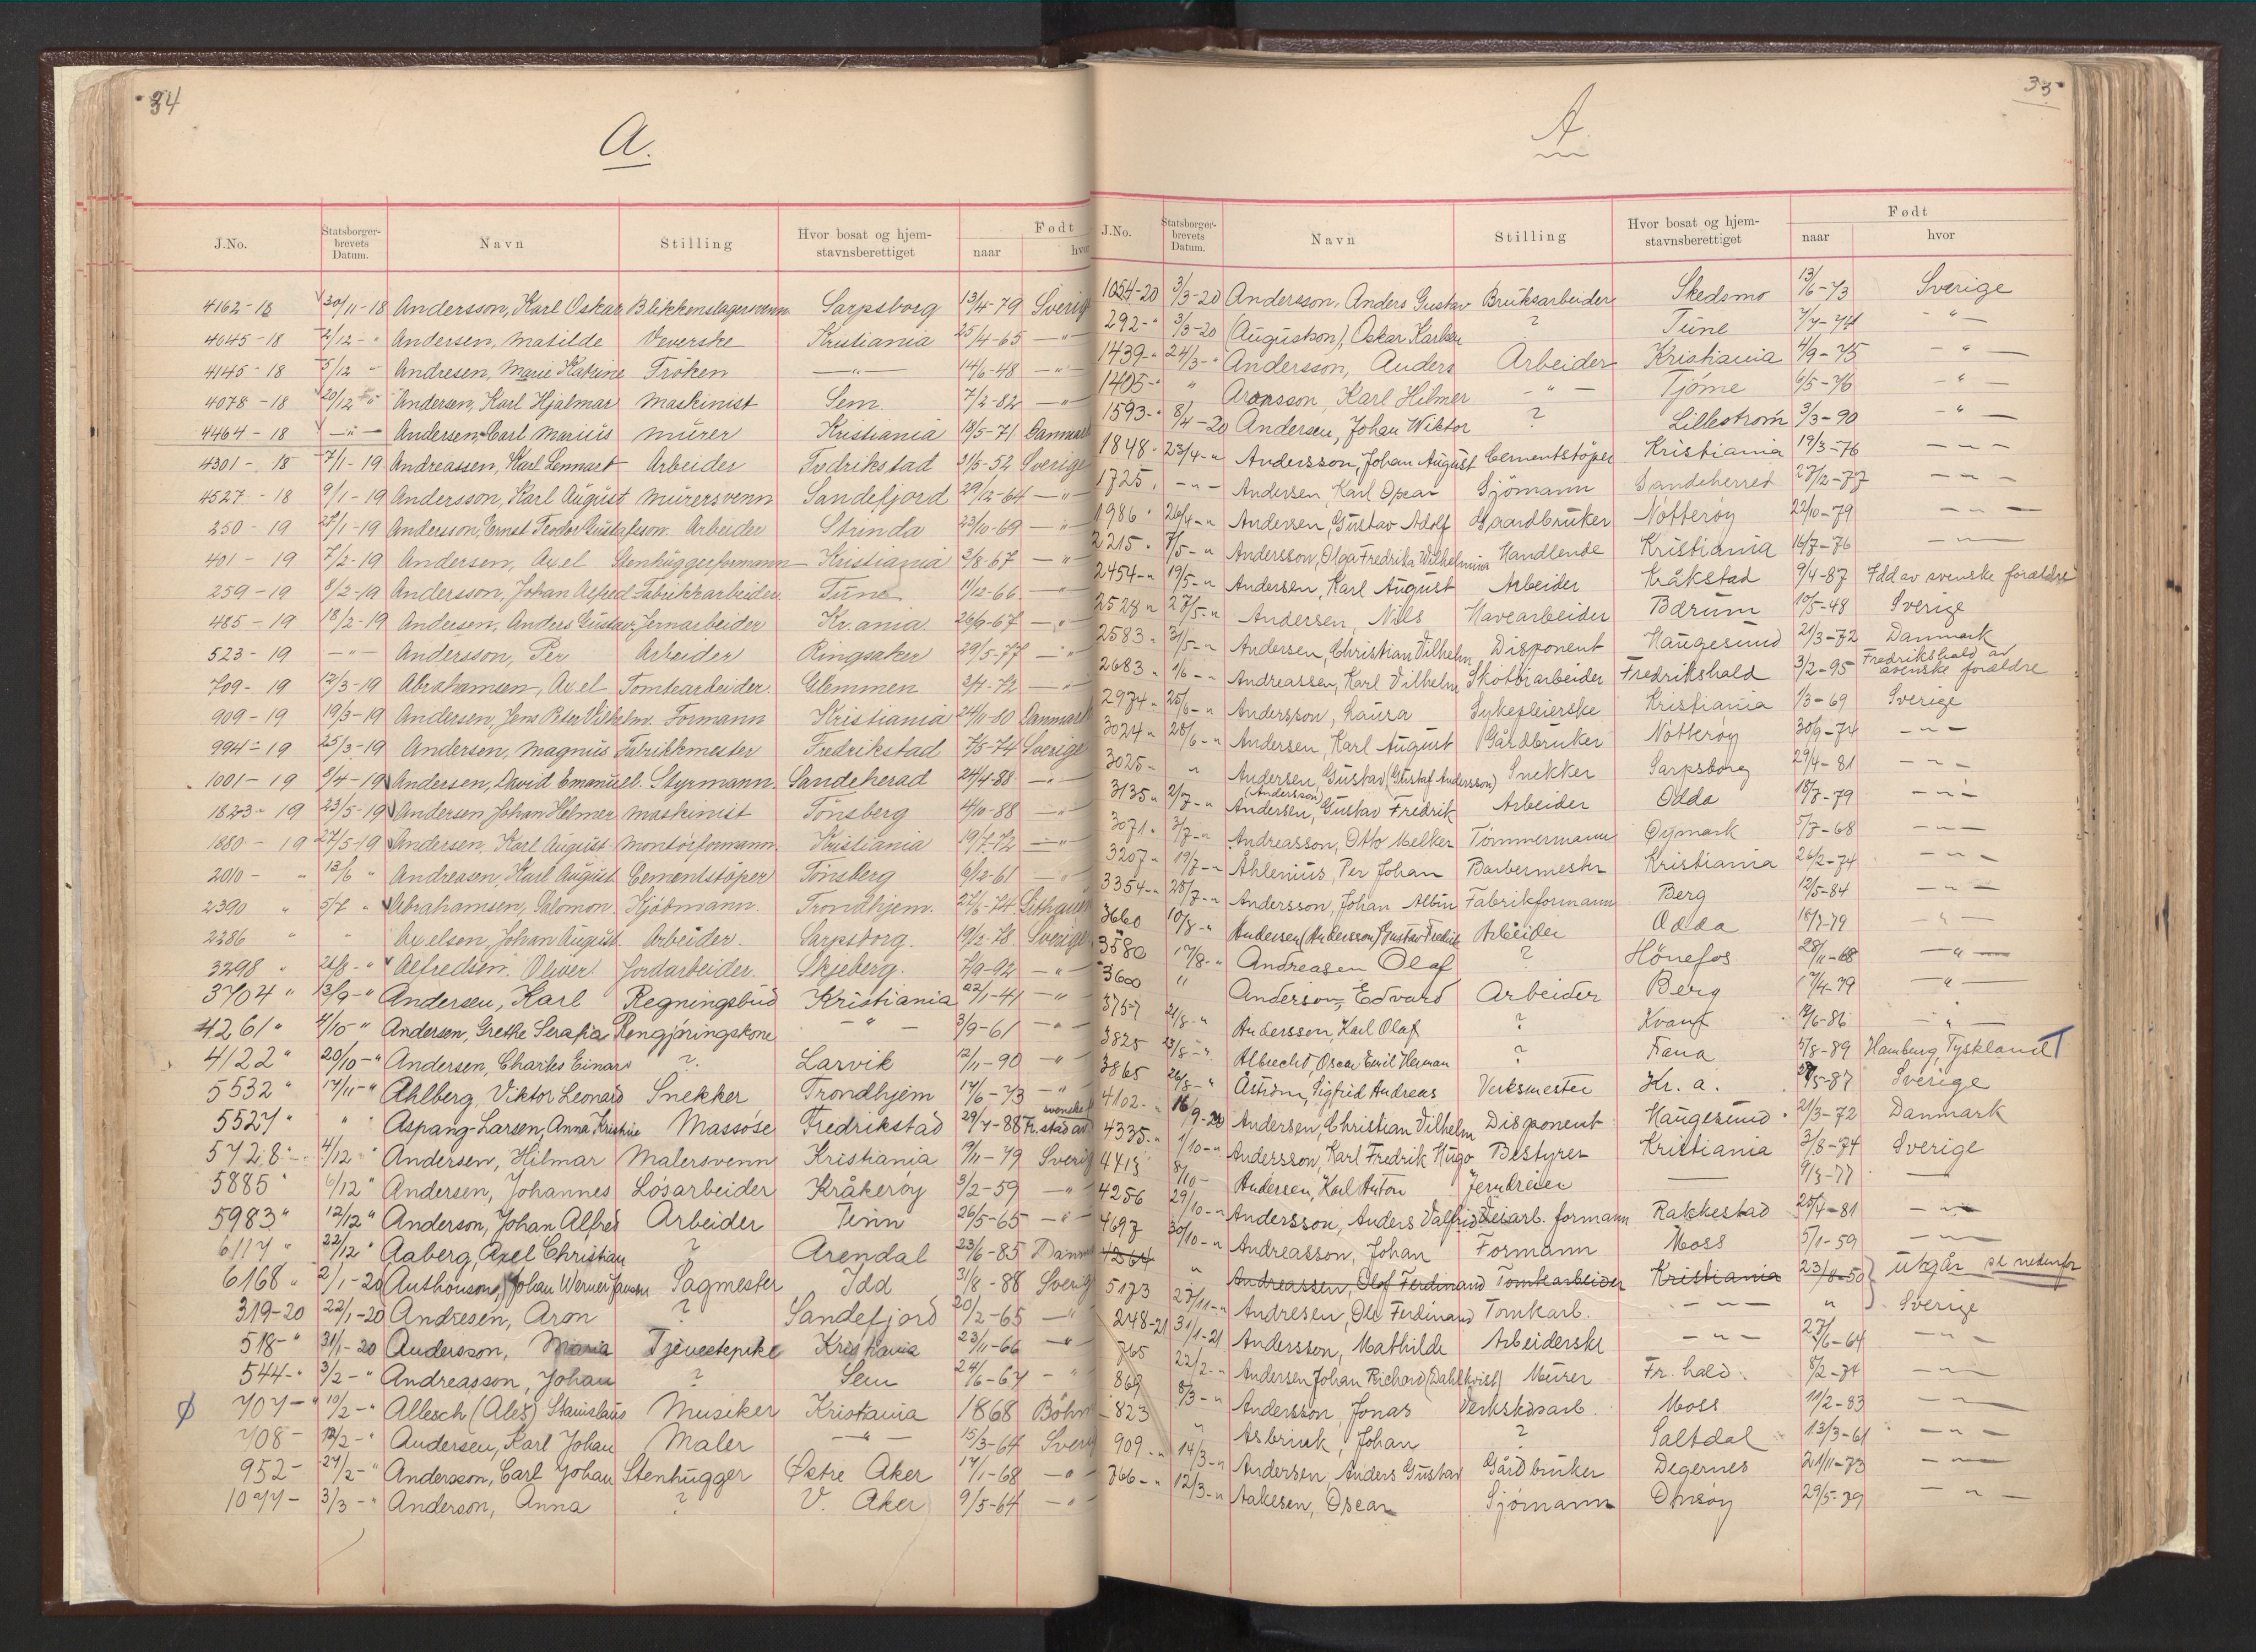 34
A.
J.No. Statsborger-brevets Datum. Navn Stilling Hvor bosat og hjem-stavnsberettiget Født naar hvor
4162-18 30/11-18 Andersson, Karl Oskar Blikkenslagersvenn Sarpsborg 13/4-79 Sverig
4045-18 2/12-" Andersen, Matilde Veverske Kristiania 25/4-65 —"—
4145-18 5/12 " Andresen, Marie Katrine Fröken —"— 14/6-48 —"—
4078-18 20/12 " Andersen, Karl Hjalmar Maskinist Sem. 7/2-82 —"—
4464-18 —"— Andersen, Carl Marius Mürer Kristiania 18/5-71 Danmark
4301-18 7/1-19 Andreassen, Karl Lennart Arbeider Fredrikstad 31/5-52 Sverige
4527-18 9/1-19 Andersson, Karl August Mürersvenn Sandefjord 29/12-64 —"—
250-19 27/1-19 Andersson, Ernst Teodor Gustafsson. Arbeider Strinda 23/10-69 —"—
401-19 7/2-19 Andersen, Axel Stenhüggerformann Kristiania 3/8-67 —"—
259-19 8/2-19 Andersson, Johan Alfred Fabrikkarbeider Tune 11/12-66 —"—
485-19 18/2-19 Andersen, Anders Gustav Jernarbeider Kr.ania 26/9-67 —"—
523-19 —"— Andersson, Per Arbeider Ringsaker 29/5-77 —"—
709-19 12/3-19 Abrahamsen, Axel Tomtearbeider. Glemmen 3/4-72 —"—
909-19 19/3-19 Andersen, Jens Peter Vilhelm. Formann Kristiania 24/11-80 Danmark
994-19 25/3-19 Andersen, Magnus Fabrikkmester Fredrikstad 7/5-74 Sverige
1001-19 8/4-19 Andersen, David Emanuel. Styrmann. Sandeherad 24/4-88 —"—
1823-19 23/5-19 Andersen Johan Hilmer Maskinist Tönsberg 4/10-88 —"—
1880-19 27/5-19 Andersen, Karl August Montörformann. Kristiania 19/7-72 —"—
2010-" 13/6 " Andreasen, Karl August Cementstöper Tönsberg 6/12-61 —"—
2390 " 5/7 " Abrahamsen, Salomon. Kjöbmann. Trondhjem. 27/6-74 Lithauen
2286 " " Axelsen, Johan August. Arbeider. Sarpsborg. 19/2-78 Sverige
3298 " 21/8-" Alfredsen. Oliver. Jordarbeider. Skjeberg. 7/9-92 —"—
3704 " 13/9-" Andersen, Karl Regningsbud Kristiania 22/1-41 —"—
4261 " 4/10-" Andersen, Grethe Serafia Rengjöringskone —"— 3/9-61 —"—
4122 " 20/10-" Andersen, Charles Einar ? Larvik 12/11-90 —"—
5532 " 17/11-" Ahlberg, Viktor Leonard Snekker Trondhjem 17/6-73 —"—
5527 " " Aspang-Larsen, Anna Kristine Massøse Fredrikstad 29/7-88 Fr.stad av svenske
5728 " 4/12 " Andersen, Hilmar Malersvenn Kristiania 9/11-79 Sverig
5885 " 6/12 " Andersen, Johannes Lösarbeider Kråkeröy 3/2-59 —"—
5983 " 12/12 " Anderson, Johan Alfred Arbeider Tinn 26/5-65 —"—
6117 " 22/12 " Aaberg, Axel Christian ? Arendal 23/6-85 Danm
6168 " 2/1-20 (Anthonsons) Johan Werner Jansen Sagmester Idd 31/8-88 Sverig
319-20 22/1-20 Andresen, Aron ? Sandefjord 20/2-65 —"—
518-" 31/1-20 Andersson, Maria Tjenestepike Kristiania 23/11-66 —"—
544-" 3/2-" Andreasson, Johan ? Sem 24/6-67 —"—
ϕ 707-" 10/2-" Allesch (Aleš) Stanislaus Musiker Kristiania 1868 Böhm
708- 12/2-" Andersen, Karl Johan Maler —"— 15/3-64 Sverig
952- 27/2-" Andersson, Carl Johan Stenhugger Østre Aker 17/1-68 —"—
1077- 3/3-" Anderson, Anna ? V. Aker 9/5-64 —"—
35
A
J.No. Statsborger-brevets Datum. Navn Stilling Hvor bosat og hjem-stavnsberettiget Født naar hvor
1054-20 3/3-20 Andersson, Anders Gustav Bruksarbeider Skedsmo 13/6-73 Sverige
292-" 3/3-20 (Augustson), Oskar Karlsen ? Tune 7/7-74 —"—
1439-" 24/3-" Andersson, Anders Arbeider Kristiania 4/9-75 —"—
1405-" " Aronsson, Karl Hilmer —"— Tjöme 6/5-76 —"—
1593-" 8/4-20 Andersen, Johan Wiktor ? Lilleström 3/3-90 —"—
1848-" 23/4-" Andersson, Johan August Cementstöper Kristiania 19/3-76 —"—
1725. —"— Andersen, Karl Oscar Sjömann Sandeherred 27/2-77 —"—
1986 " 26/4-" Andersen, Gustav Adolf Gaardbruker Nötteröy 22/10-79 —"—
2215. 7/5-" Andersson, Olga Fredrika Wilhelmina Handlende Kristiania 16/7-76 —"—
2454-" 19/5-" Andersen, Karl August Arbeider Kråkstad 9/4-87 Idd av svenske forældre
2528 " 27/5-" Andersen, Nils Havearbeider Bærum 10/5-48 Sverige
2583 " 31/5-" Andersen, Christian Vilhelm Disponent Haugesund 21/3-72 Danmark
2683 " 1/6-" Andreassen, Karl Vilhelm Skotöiarbeider Fredrikshald 3/2-95 Fredrikshald av svenske forældre
2974 " 25/6-" Andersson, Laura Sykepleierske Kristiania 1/3-69 Sverige
3024 " 28/6-" Andersen, Karl August Gårdbruker Nötteröy 30/9-74 —"—
3025- " Andersen, Gustav (Gustaf Andersson) Snekker Sarpsborg 29/4-81 —"—
3135 " 2/7-" Andersen, (Andersson) Gustav Fredrik Arbeider Odda 18/7-79 —"—
3071 " 3/7-" Andreasson, Otto Melker Tömmermann Öymark 5/7-68 —"—
3207 " 19/7-" Åhlenius, Per Johan Barbermester Kristiania 26/2-74 —"—
3354-" 28/7-" Andersson, Johan Albin Fabrikformann Berg 12/5-84 —"—
3660 10/8-" Andersen (Andersson) Gustav Fredrik Arbeider Odda 18/7-79 —"—
3580 17/8-" Andreasen Olaf ? Hönefos 28/11-68 —"—
3600 " Anderson, Edvard Arbeider Berg 17/4-79 —"—
3757 21/8-" Andersson, Karl Olaf ? Kvam 19/6-86 —"—
3825 23/8-" Albrecht, Oscar Emil Herman ? Fana 5/8-89 Hamburg, Tyskland T
3865 26/8-" Åström, Sigfrid Andreas Verksmester Kr. a. 27/5-87 Sverige
4102-" 16/9-20 Andersen, Christian Vilhelm Disponent Haugesund 21/3-72 Danmark
4335-" 1/10-" Andersson, Karl Fredrik Hugo Bestyrer Kristiania 3/8-74 Sverige
4413 8/10- Andersen, Karl Anton Jerndreier — 9/3-77 —
4256 29/10-" Andersson, Anders Valfrid Veiarb. formann Rakkestad 25/4-81 —"—
4697 30/10-" Andreasson, Johan Formann Moss 5/1-59 —"—
4264 " Andreassen, Olof Ferdinand Tomtearbeider Kristiania 23/8-50 } utgår se nedenfor
5173 27/11-" Andresen, Ole Ferdinand Tomtearb. —"— " Sverige
248-21 31/1-21 Andersson, Mathilde Arbeiderske —"— 27/6-64 —"—
765 22/2-" Andersen Johan Richard (Dahlkvist) Murer Fr. hald. 8/2-74 —"—
869 8/3-" Andersson, Jonas Verkstedsarb. Moss 11/2-83 —"—
823 " Asbrink, Johan ? Saltdal 13/3-61 —"—
909-" 14/3-" Andersen, Anders Gustav Gårdbruker Degernes 21/11-73 —"—
766-" 12/3-" Aakesen, Oscar Sjömann Onsøy 29/5-79 —"—